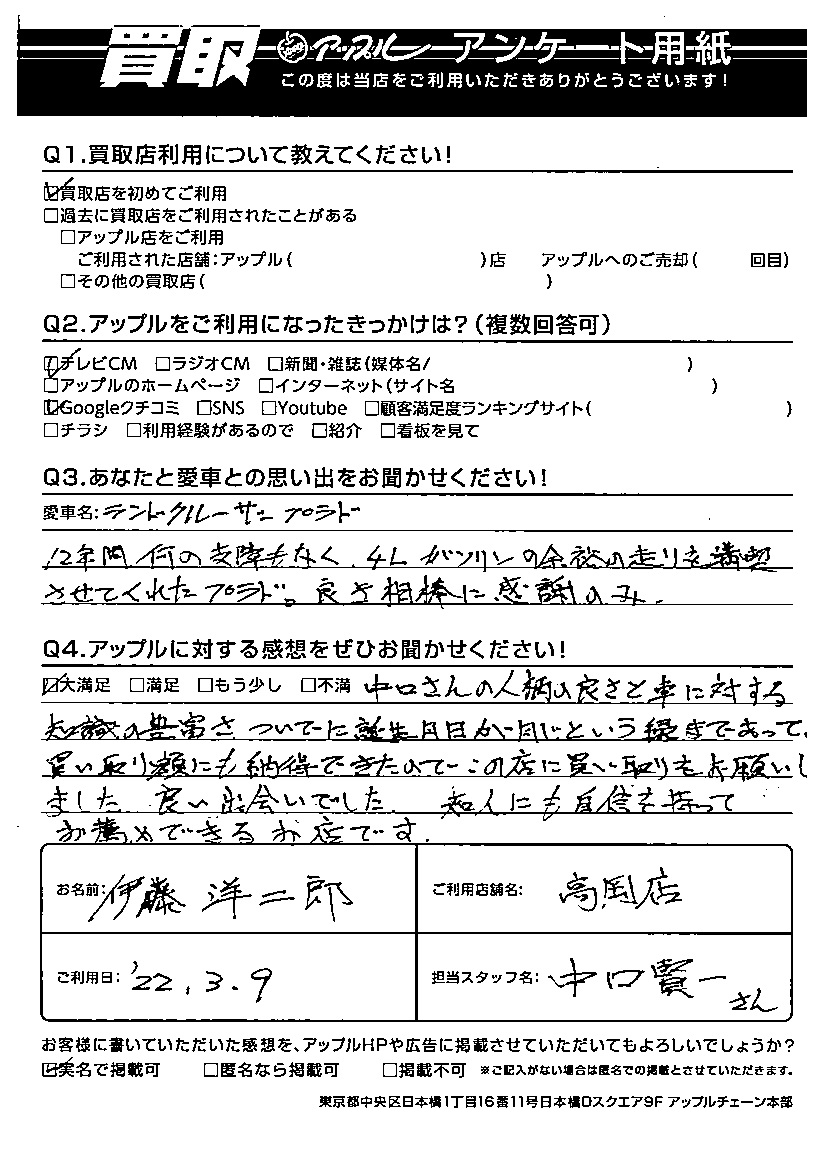 買取 アップル アンケート用紙
この度は当店をご利用いただきありがとうございます!
Q1.買取店利用について教えてください!
☑買取店を初めてご利用
□過去に買取店をご利用されたことがある
□アップル店をご利用
ご利用された店舗:アップル( )店 アップルへのご売却( 回目)
□その他の買取店( )
Q2.アップルをご利用になったきっかけは?(複数回答可)
☑テレビCM □ラジオCM □新聞・雑誌(媒体名/ )
□アップルのホームページ □インターネット(サイト名 )
☑Googleクチコミ □SNS □Youtube □顧客満足度ランキングサイト( )
□チラシ □利用経験があるので □紹介 □看板を見て
Q3.あなたと愛車との思い出をお聞かせください!
愛車名:ランドクルーザー プラド
12年間何の支障もなく、4Lガソリンの余裕の走りを満喫
させてくれたプラド。良き相棒に感謝のみ.
Q4.アップルに対する感想をぜひお聞かせください!
☑大満足 □満足 □もう少し □不満 中口さんの人柄の良さと車に対する
知識の豊富さ ついでに誕生月日が同じという縁まであって、
買い取り額にも納得できたので この店に買い取りをお願いし
ました 良い出会いでした 知人にも自信を持って
お薦めできるお店です.
お名前: 伊藤 洋二郎 ご利用店舗名: 高岡店
ご利用日: '22.3.9 担当スタッフ名: 中口賢一
さん
お客様に書いていただいた感想を、アップルHPや広告に掲載させていただいてもよろしいでしょうか?
☑実名で掲載可 □匿名なら掲載可 □掲載不可 ※ご記入がない場合は匿名での掲載とさせていただきます。
東京都中央区日本橋1丁目16番11号日本橋Dスクエア9F アップルチェーン本部